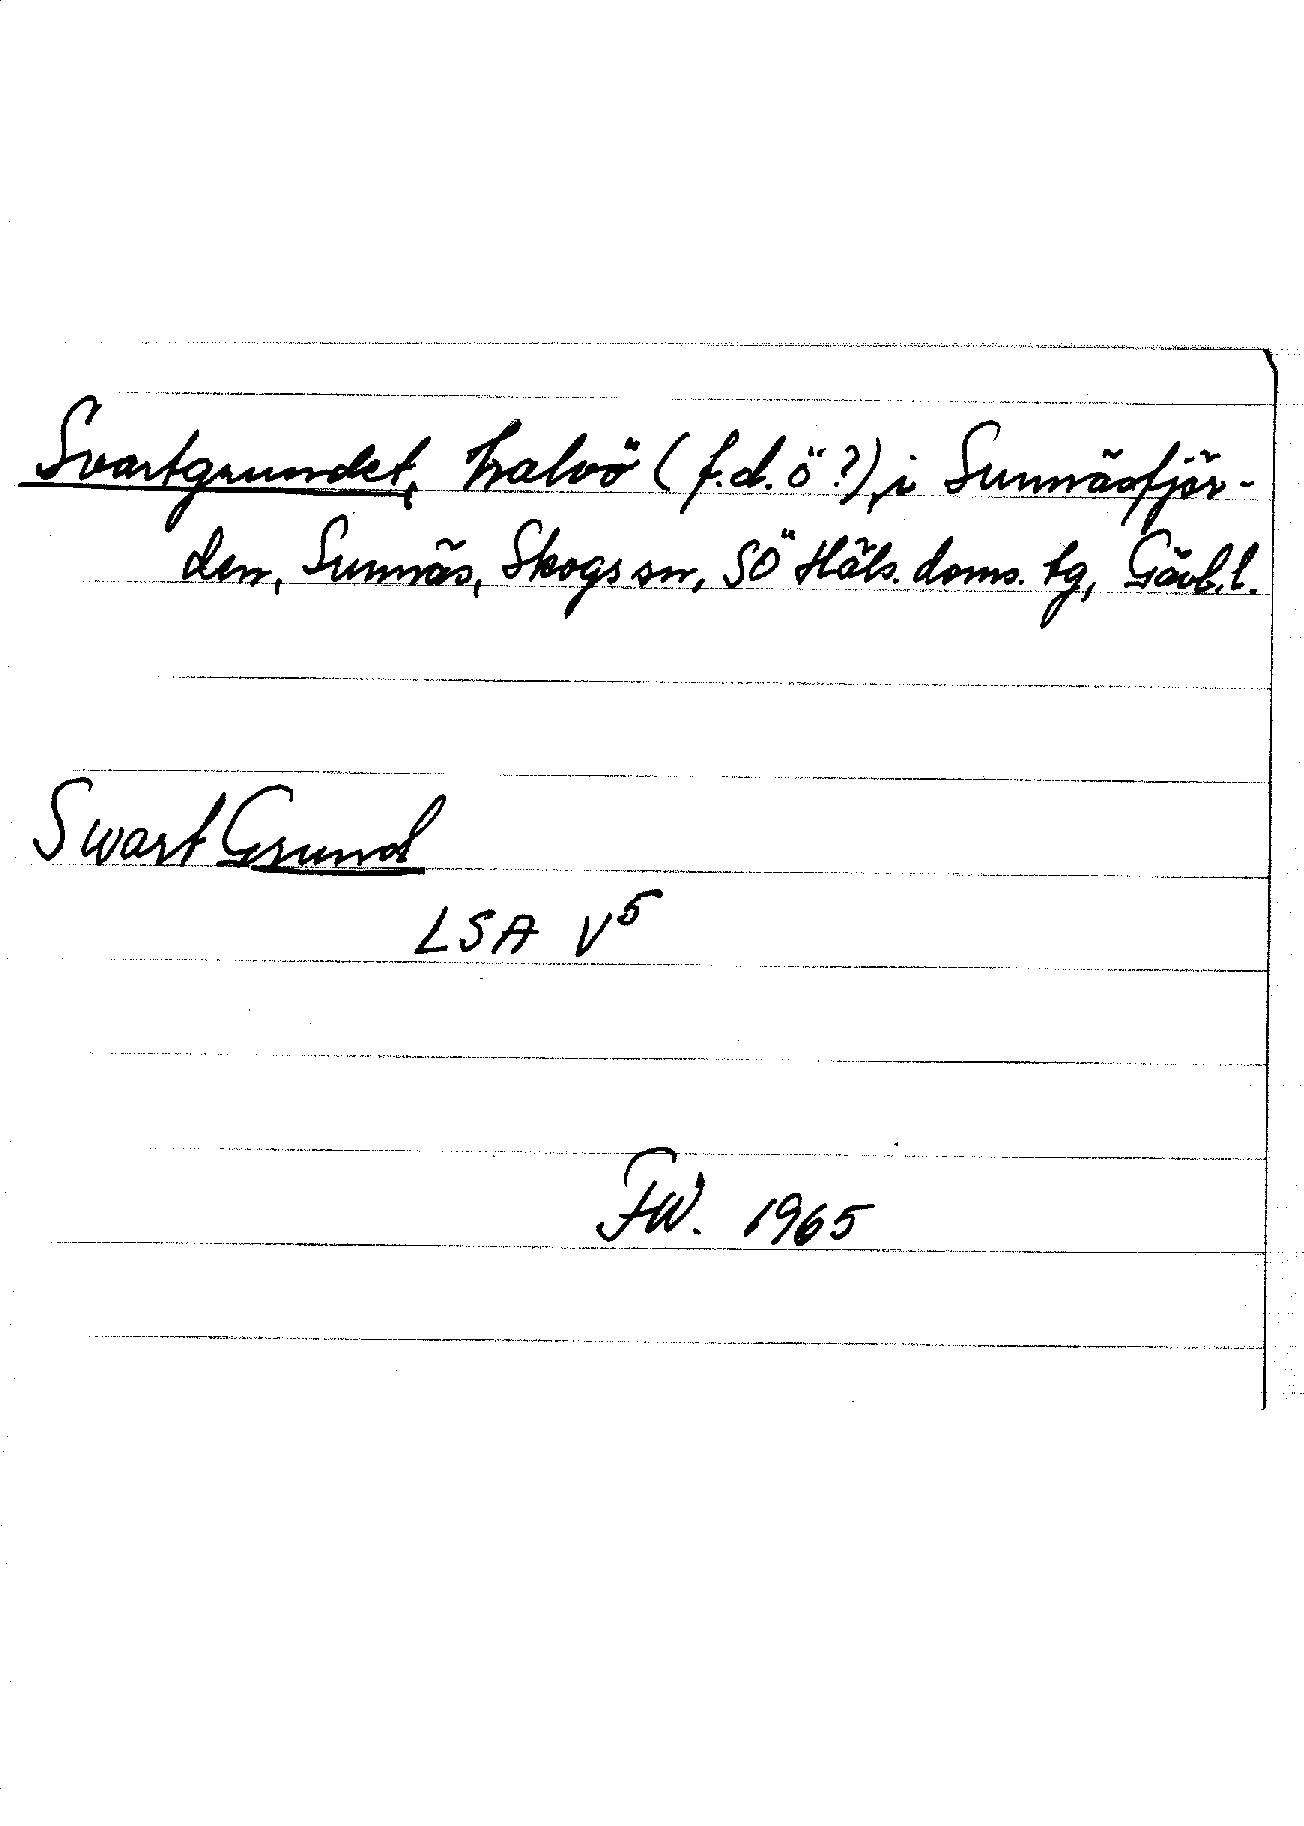 Svartgrundet, halvö (f.d. ö?), i Sunnäsfjär-
den, Sunnäs, Skogs sn, SÖ Häls. doms. tg, Gävl.l.
Swart Grund
LSA V⁵
FW. 1965